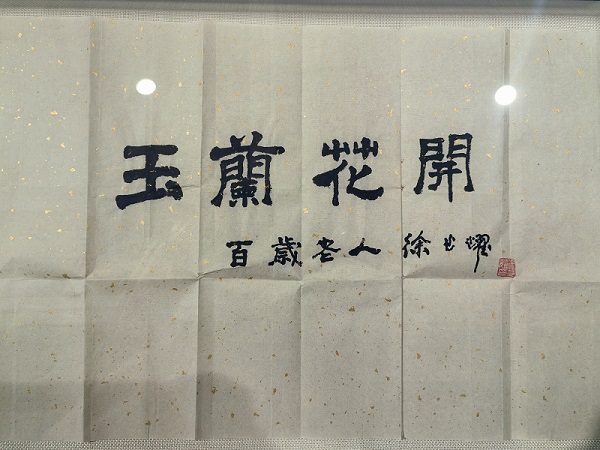 玉蘭花開
百歲老人 徐光耀